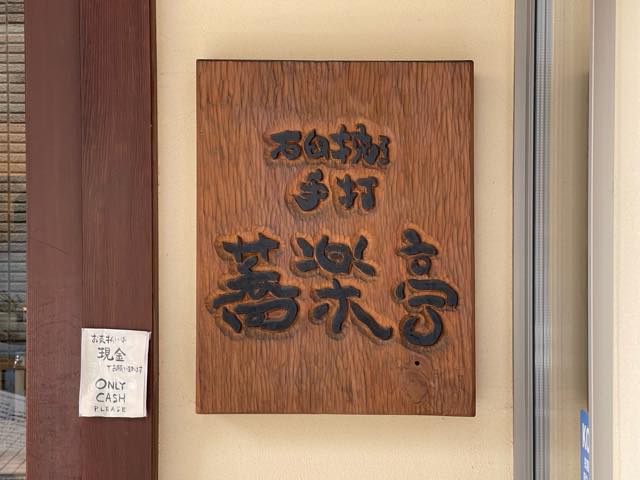 石臼挽
手打
蕎楽亭
お支払いは
現金
でお願い致します
ONLY
CASH
PLEASE